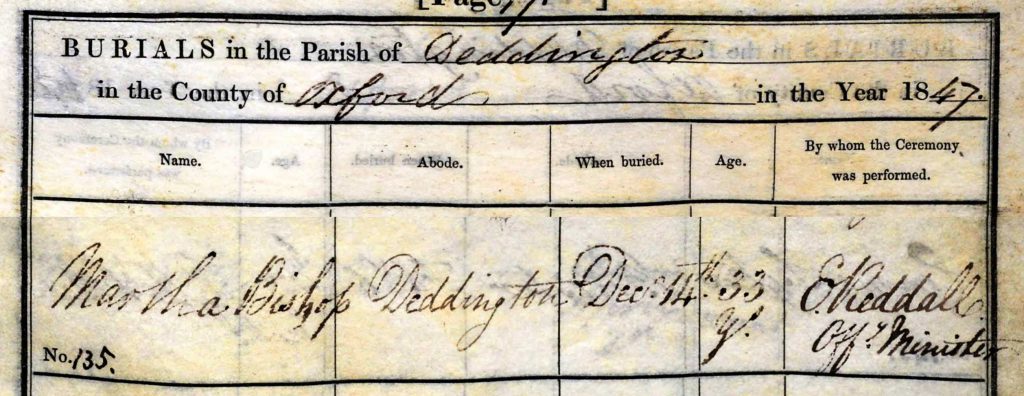 BURIALS in the Parish of Deddington
in the County of Oxford in the Year 1847.
Name. Abode. When buried. Age. By whom the Ceremony was performed.
Martha Bishop Deddington Decr. 14th 33 E. Reddall
yrs. Offg. Minister
No. 135.